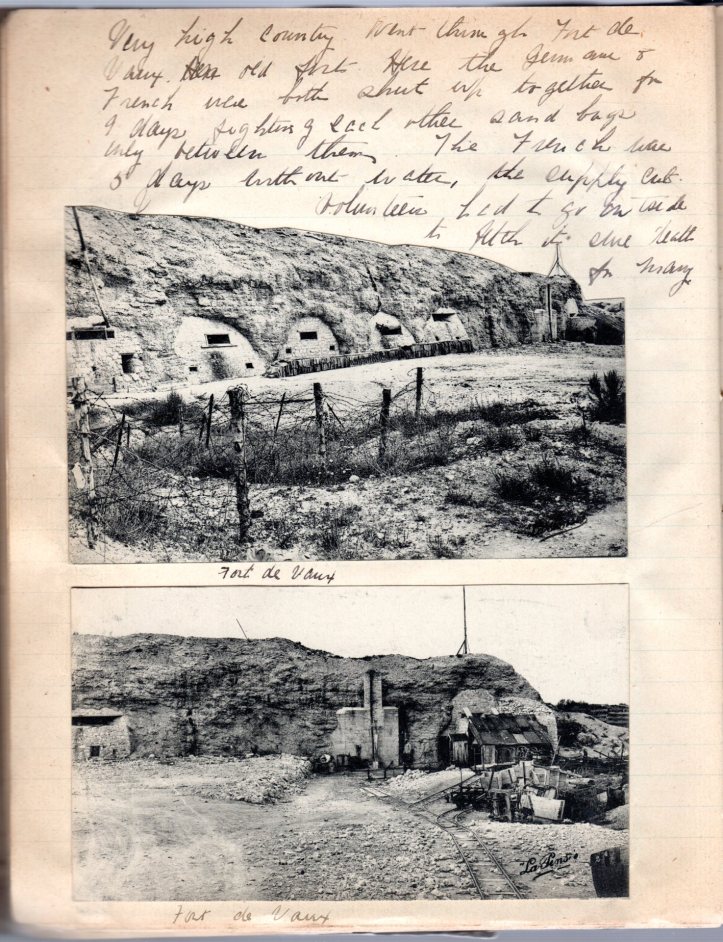 Very high country went through Fort de
Vaux. old fort. Here the Germans &
French were both shut up together for
9 days fighting each other sand bags
only between them. The French were
5 days without water, the supply cut.
Volunteers had to go outside
to fetch it sure death
for many
Fort de Vaux
"La Pensée"
Fort de Vaux